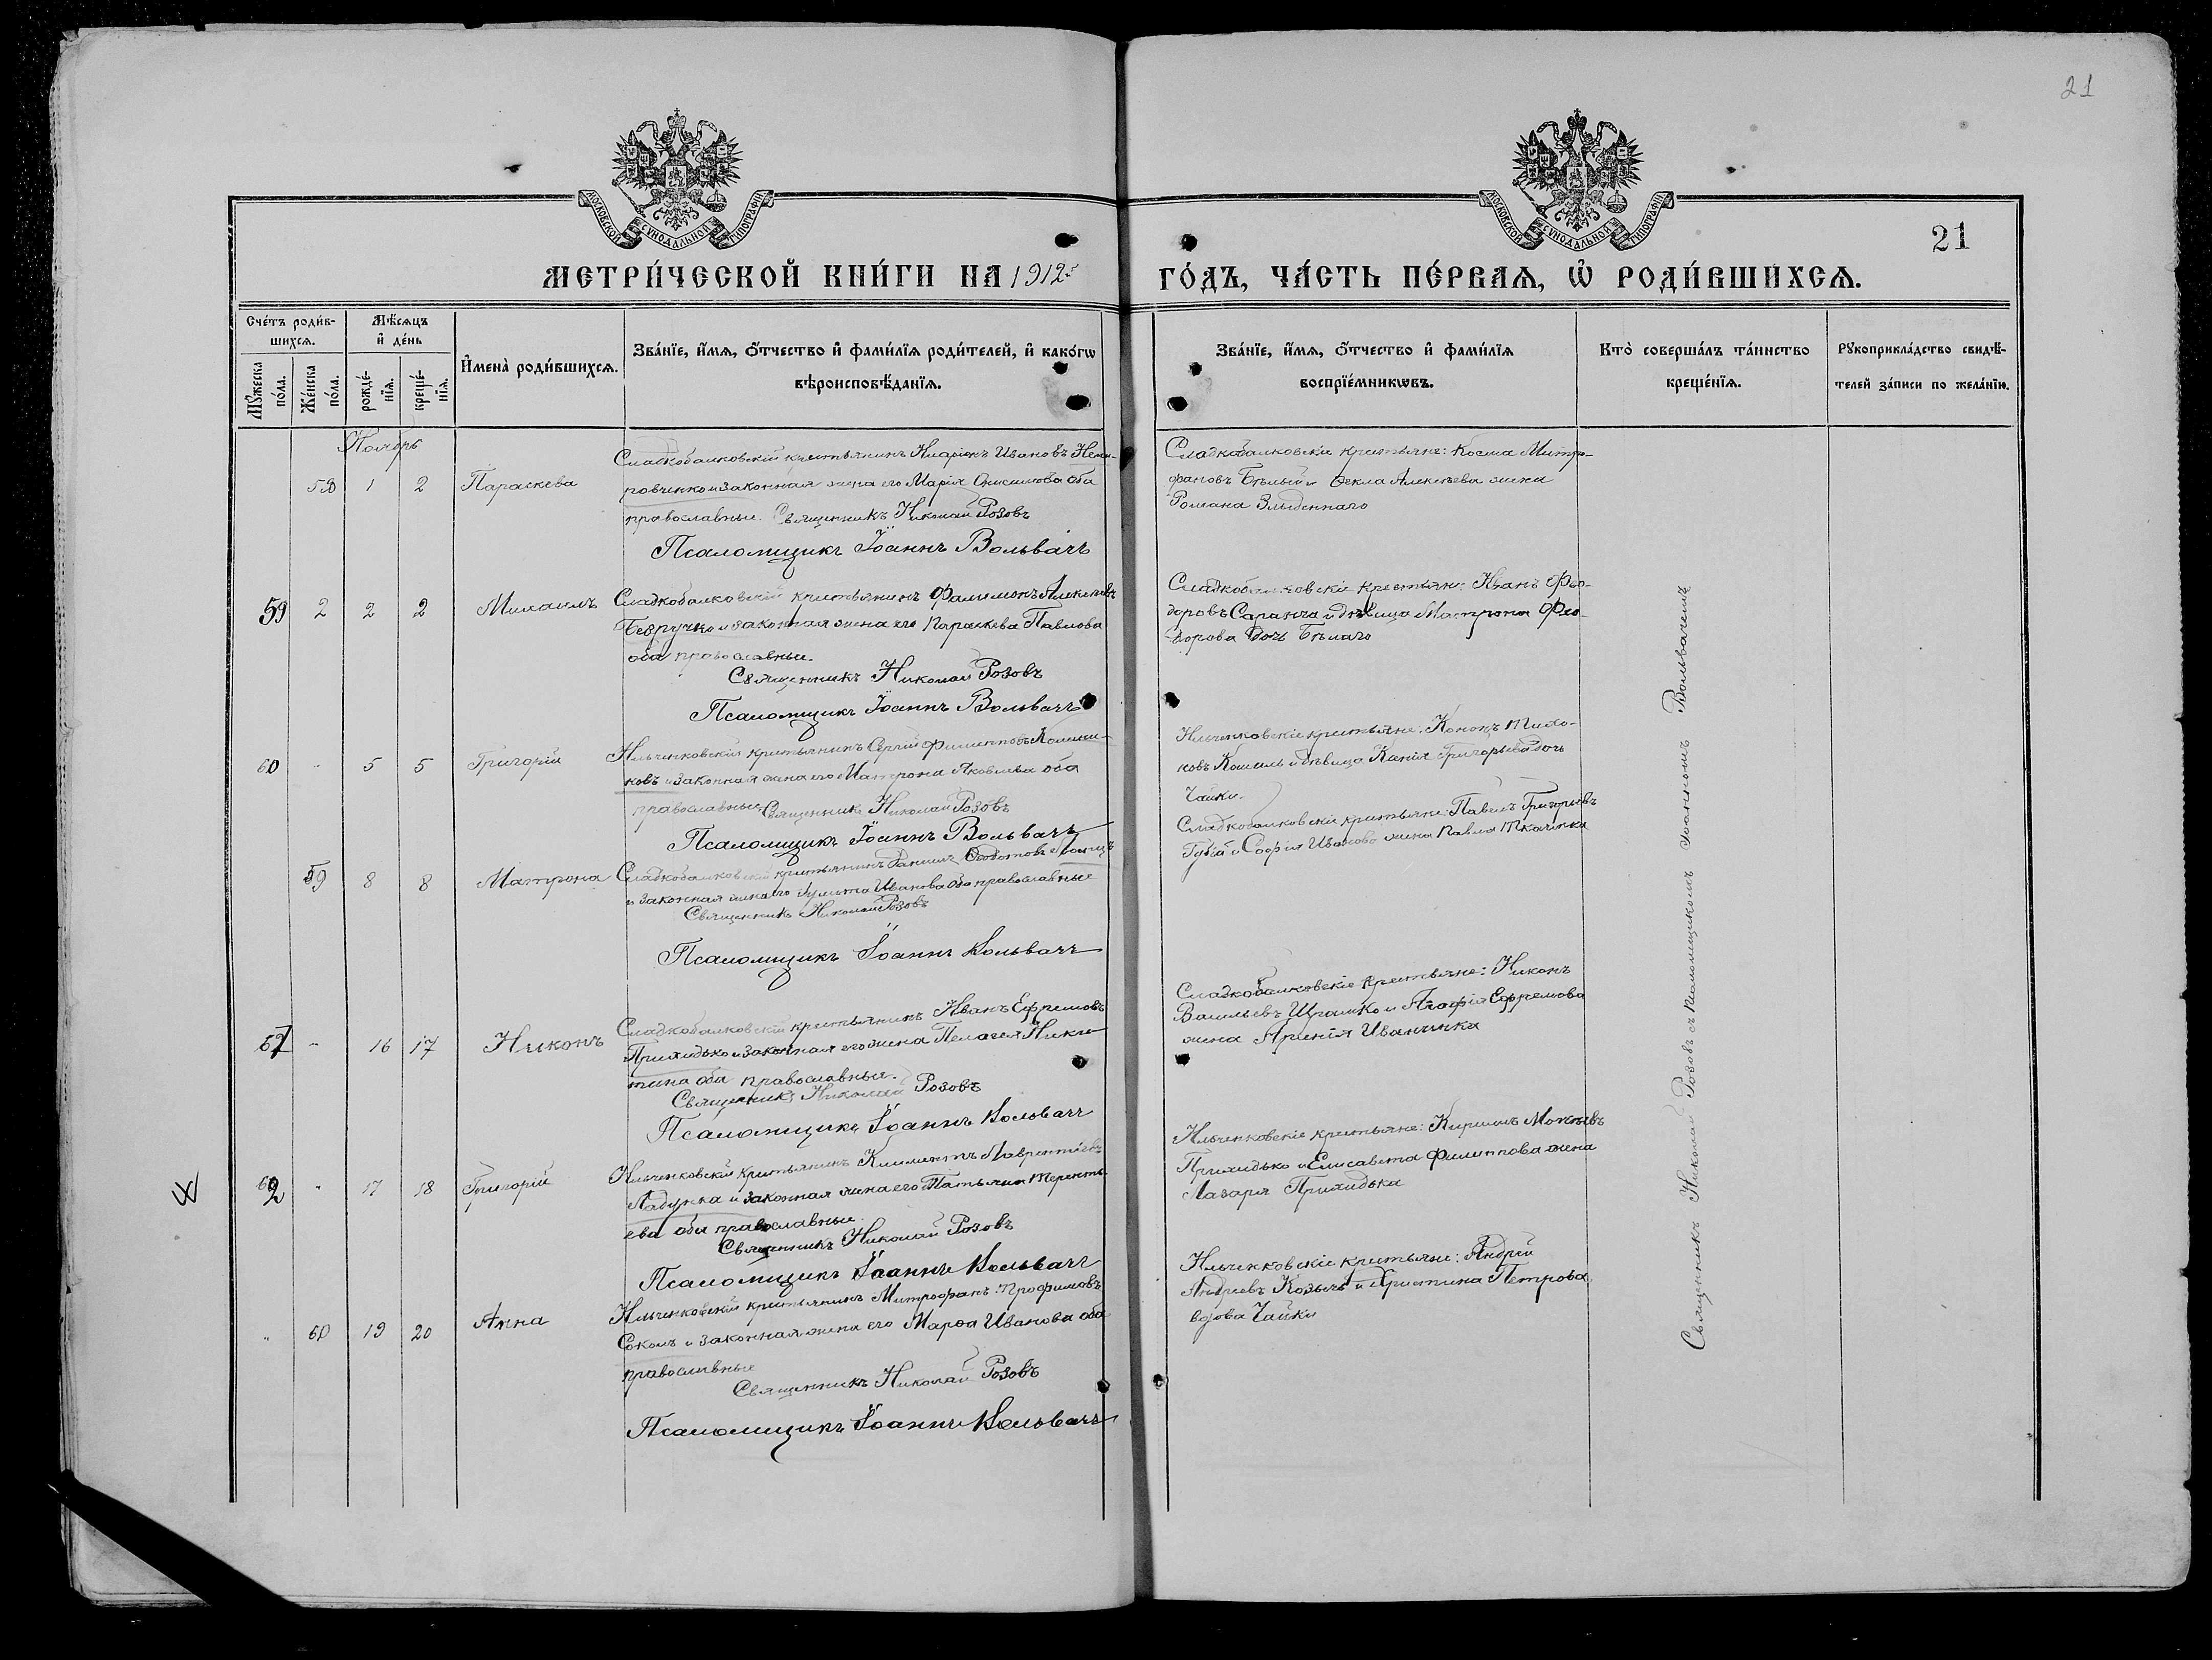 21
МОСКОВСКОЙ СУНОДАЛЬНОЙ ТИПОГРАФІИ
МОСКОВСКОЙ СУНОДАЛЬНОЙ ТИПОГРАФІИ
21
МЕТРИ́ЧЕСКОЙ КНИ́ГИ НА 1912
ГО́ДЪ, ЧА́СТЬ ПЕ́РВАѦ, Ѿ РОДИ́ВШИХСѦ.
Сче́тъ роди́в-
шихсѧ.
Мꙋжеска по́ла.
Же́нска по́ла.
Мѣ́сѧцъ
и҆ де́нь
рожде́-
нїѧ.
креще́-
нїѧ.
И҆мена̀ роди́вшихсѧ.
Зва́нїе, и҆́мѧ, ѻ҆́тчество и҆ фами́лїѧ роди́телей, и҆ како́гѡ
вѣроисповѣ́данїѧ.
Зва́нїе, и҆́мѧ, ѻ҆́тчество и҆ фами́лїѧ
воспрїе́мникѡвъ.
Кто̀ соверша́лъ та́инство
креще́нїѧ.
Рꙋкоприкла́дство свидѣ́-
телей за́писи по жела́нїю.
Ноябрь
58 1 2 Параскева
Сладкобалковскій крестьянинъ Иларіонъ Ивановъ
ровченко и законная жена его Марія оба
православные. Священникъ Николай Розовъ
Псаломщикъ Іоаннъ Вольвачъ
Сладкобалковскіе крестьяне: Косма Митро-
фановъ Бѣлый и Ѳекла Алексѣева жена
Романа Злыденнаго
59 2 2 2 Михаилъ
Сладкобалковскій крестьянинъ Филимонъ Алексѣевъ
Безручко и законная жена его Параскева Павлова
оба православные.
Священникъ Николай Розовъ
Псаломщикъ Іоаннъ Вольвачъ
Сладкобалковскіе крестьяне: Иванъ Ѳео-
доровъ Саранча и дѣвица Матрона Ѳео-
дорова дочь Бѣлаго
60 " 5 5 Григорій
Ильченковскій крестьянинъ Сергій Филипповъ
ковъ и законная жена его Матрона Яковлева оба
православные Священникъ Николай Розовъ
Псаломщикъ Іоаннъ Вольвачъ
Ильченковскіе крестьяне: Кононъ Тихо-
новъ Кошель и дѣвица Ксенія Григорьева дочь
Чайки.
59 8 8 Матрона
Сладкобалковскій крестьянинъ Даніилъ
и законная жена его Іулитта Иванова оба православные
Священникъ Николай Розовъ
Псаломщикъ Іоаннъ Вольвачъ
Сладкобалковскіе крестьяне: Павелъ Григорьевъ
Губа и Софія Иванова жена Павла Ткаченка
61 " 16 17 Никонъ
Сладкобалковскій крестьянинъ Иванъ Ефремовъ
Прихидько и законная его жена Пелагея Ники-
тина оба православные.
Священникъ Николай Розовъ
Псаломщикъ Іоаннъ Вольвачъ
Сладкобалковскіе крестьяне: Никонъ
Васильевъ и Агафія Ефремова
жена Арсенія Иваненка
62 " 17 18 Григорій
Ильченковскій крестьянинъ Климентъ Лаврентіевъ
Ладунка и законная жена его Татьяна Теренть-
ева оба православные
Священникъ Николай Розовъ
Псаломщикъ Іоаннъ Вольвачъ
Ильченковскіе крестьяне: Кириллъ Мокѣевъ
Прихидько и Елисавета Филиппова жена
Лазаря Прихидька
" 60 19 20 Анна
Ильченковскій крестьянинъ Митрофанъ Трофимовъ
Соколъ и законная жена его Марѳа Иванова оба
православные
Священникъ Николай Розовъ
Псаломщикъ Іоаннъ Вольвачъ
Ильченковскіе крестьяне: Андрей
Андреевъ Козырь и Христина Петрова
вдова Чайки
Священникъ Николай Розовъ съ псаломщикомъ Іоанномъ Вольвачемъ